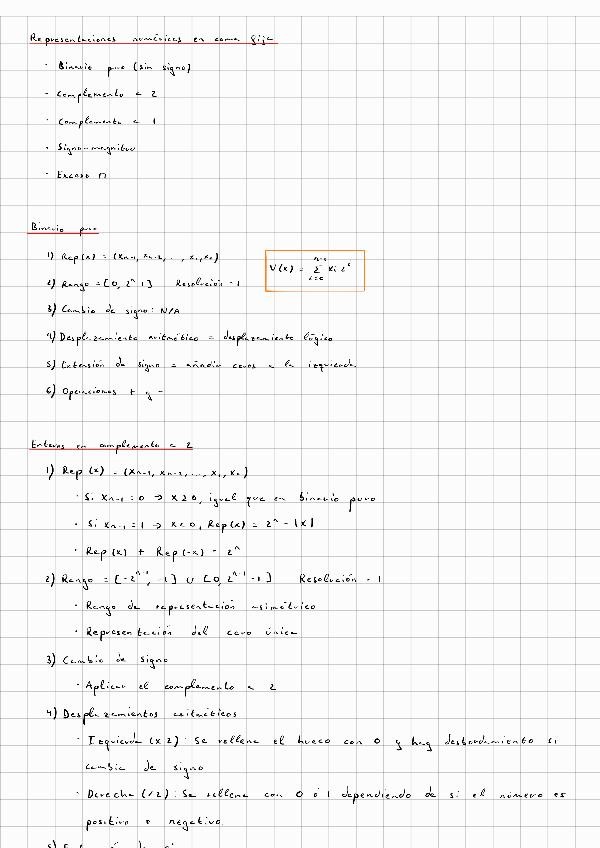 Representaciones numéricas en coma fija
· Binario puro (sin signo)
- Complemento a 2
· Complemento a 1
· Signo-magnitud
· Exceso n
Binario puro
1) Rep(x) = (xn-1, xn-2, ..., x1, x0)
V(x) = Σ xi 2^i
n-1
i=0
2) Rango = [0, 2^n-1] Resolución = 1
3) Cambio de signo: N/A
4) Desplazamiento aritmético = desplazamiento lógico
5) Extensión de signo = añadir ceros a la izquierda
6) Operaciones + y -
Enteros en complemento a 2
1) Rep (x) = (xn-1, xn-2, ..., x1, x0)
· Si xn-1 = 0 → x ≥ 0, igual que en binario puro
· Si xn-1 = 1 → x < 0, Rep(x) = 2^n - |x|
· Rep(x) + Rep(-x) = 2^n
2) Rango = [-2^n-1, -1] ∪ [0, 2^n-1 -1] Resolución = 1
· Rango de representación asimétrico
· Representación del cero única
3) Cambio de signo
· Aplicar el complemento a 2
4) Desplazamientos aritméticos
· Izquierda (x2): Se rellena el hueco con 0 y hay desbordamiento si
cambia de signo
· Derecha (/2): Se rellena con 0 ó 1 dependiendo de si el número es
positivo o negativo